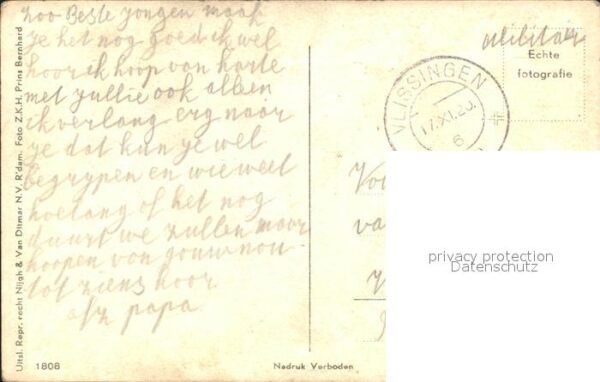 Zoo Beste Jongen maak
je het nog goed ik wel
hoor ik hoop van harte
met jullie ook alleen
ik verlang erg naar
je dat kun je wel
begrypen en wie weet
hoelang of het nog
duurt we zullen maar
hoopen van gouw nou
tot ziens hoor
afz papa
Militair
Echte
fotografie
VLISSINGEN
17.XI.20.
6
va
privacy protection
Datenschutz
Uitsl. Repr. recht Nijgh & Van Ditmar N.V. R'dam. Foto Z.K.H. Prins Bernhard
1808
Nadruk Verboden